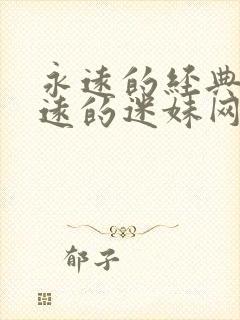 永远的经典
远的迷妹网
郁子